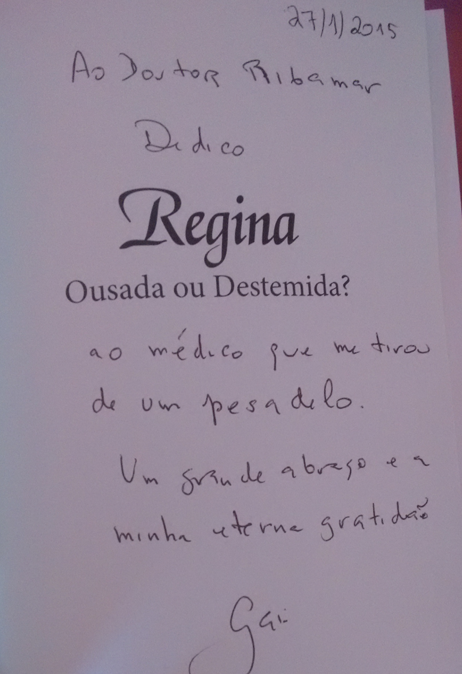 27/1/2015
Ao Doutor Ribamar
Dedico
Regina
Ousada ou Destemida?
ao médico que me tirou
de um pesadelo.
Um grande abraço e a
minha eterna gratidão